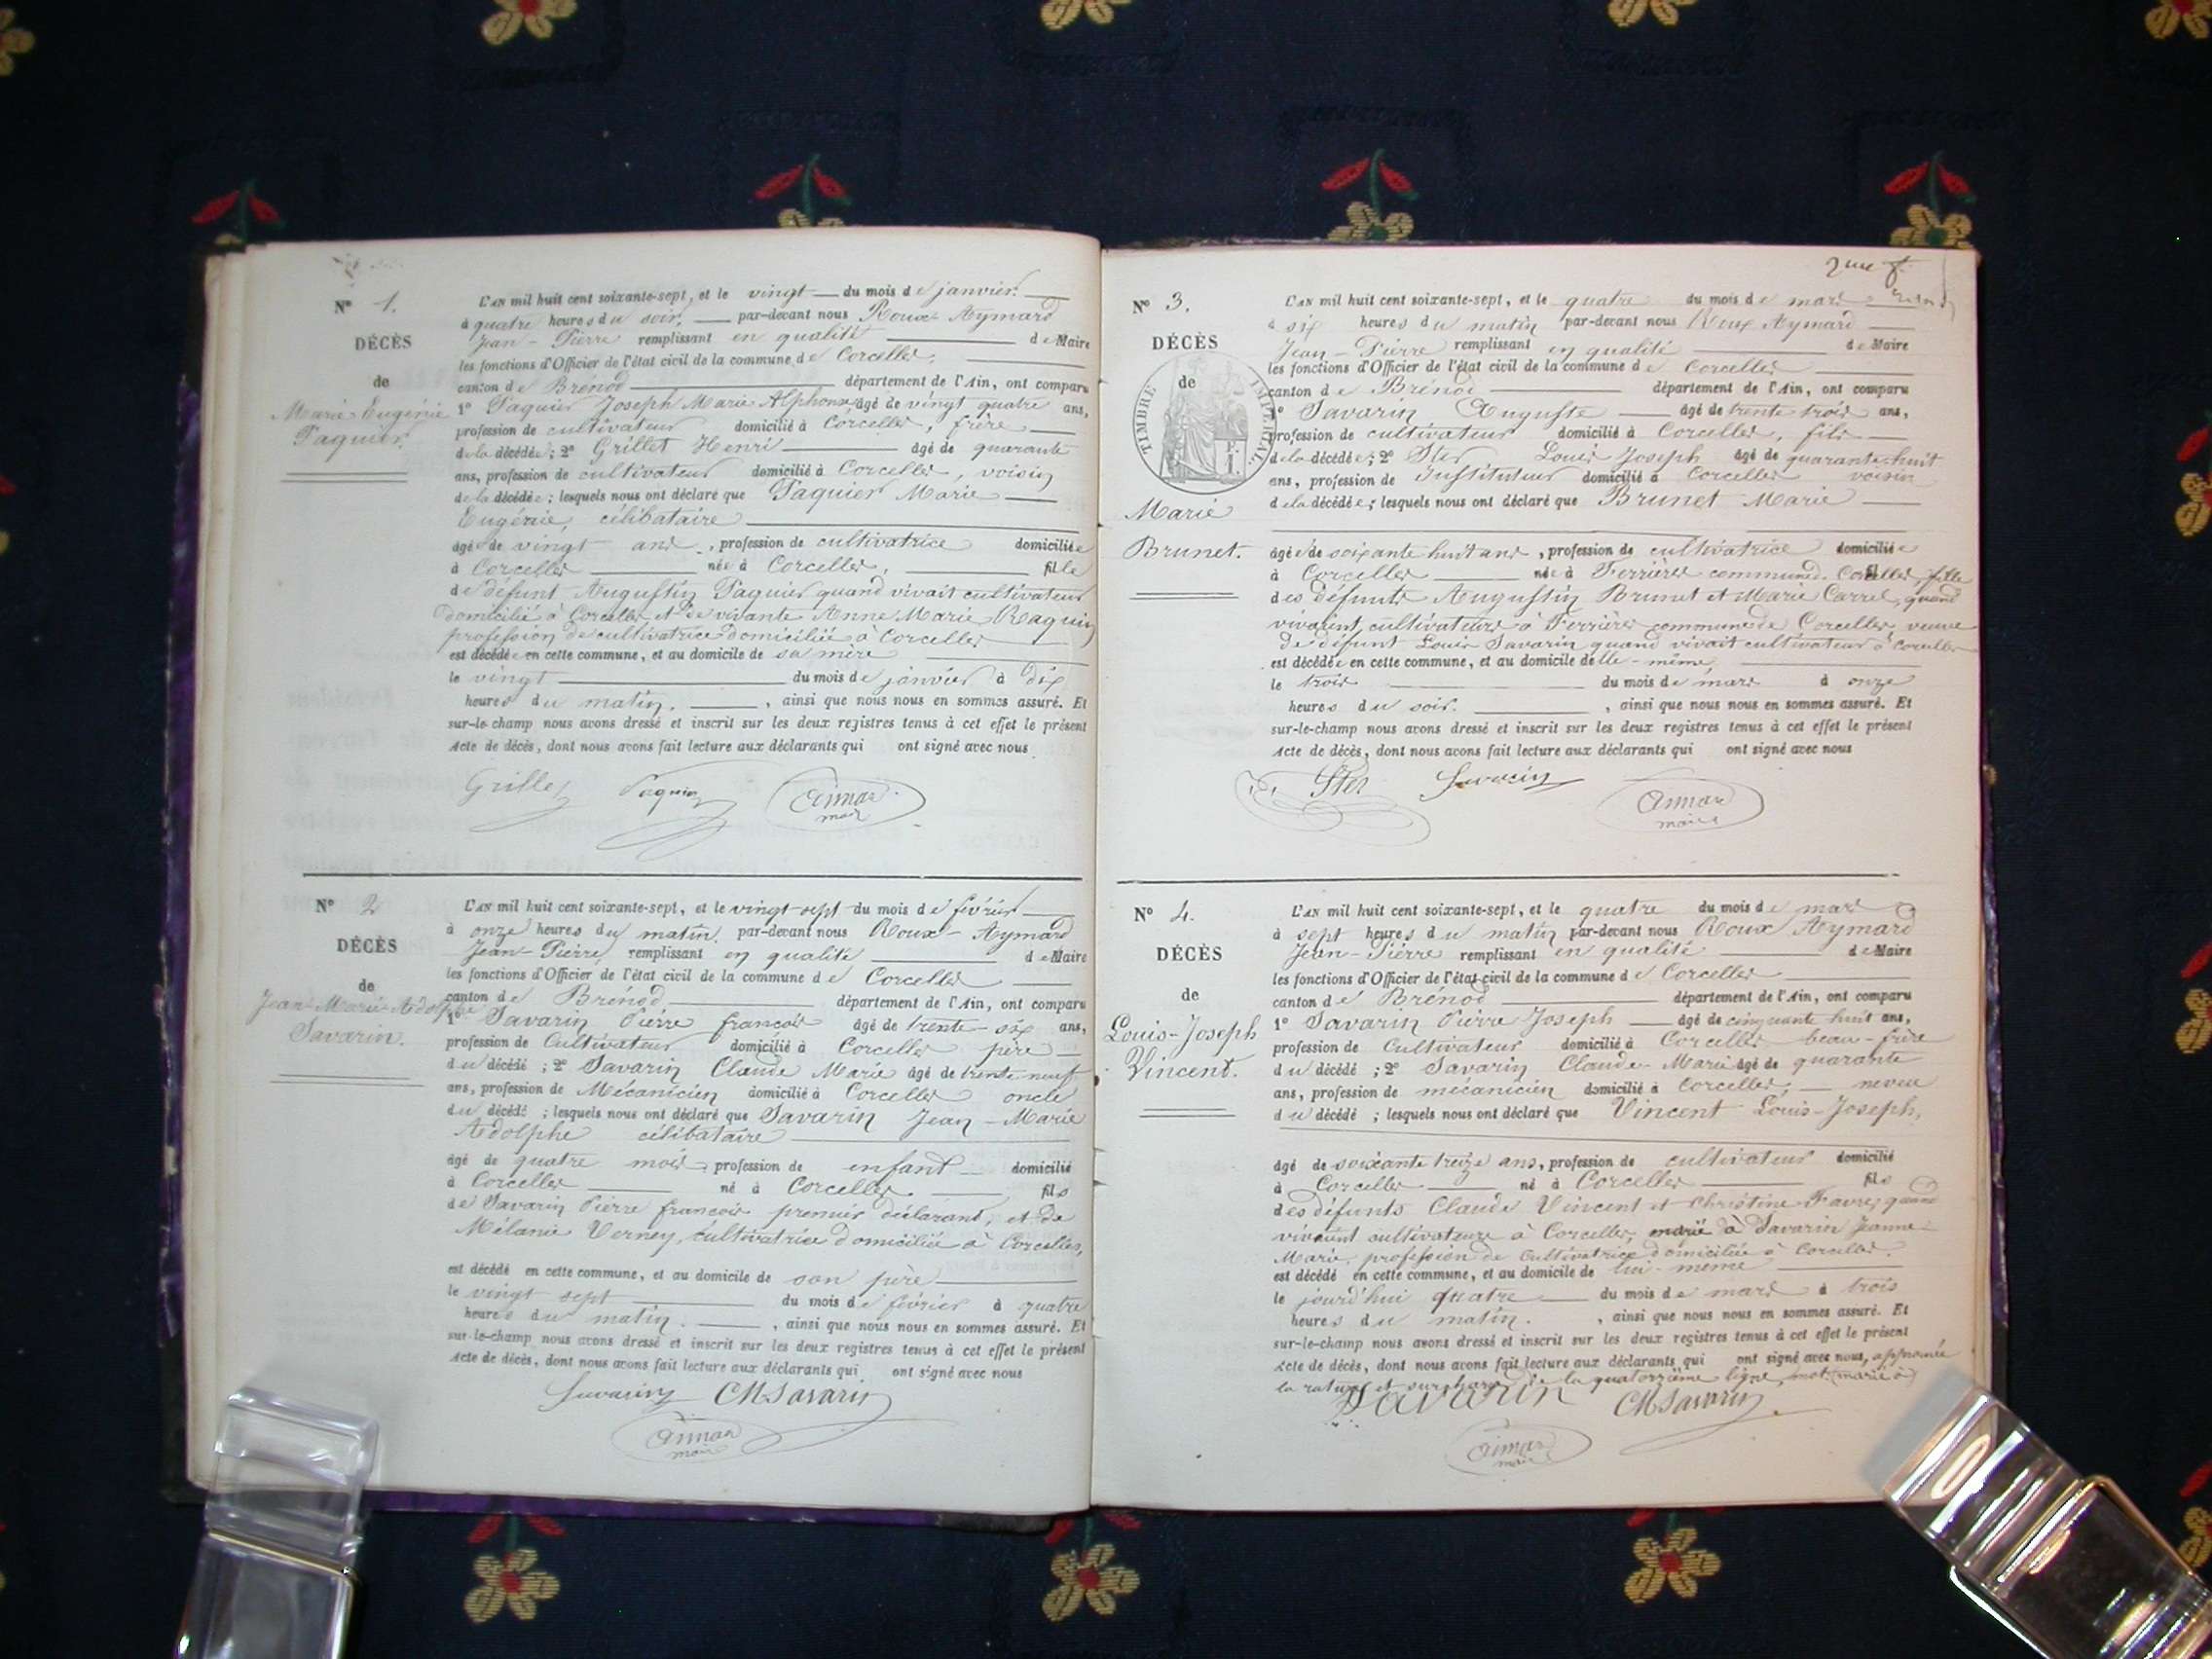 N° 1.
DÉCÈS
de
Marie Eugénie
Paquier.
L'AN mil huit cent soixante-sept, et le vingt du mois de janvier.
à quatre heures du soir, par-devant nous Roux-Aymard
Jean-Pierre remplissant en qualité de Maire
les fonctions d'Officier de l'état civil de la commune de Corcelles,
canton de Brénod département de l'Ain, ont comparu
1° Paquier Joseph Marie Alphonse, âgé de vingt quatre ans,
profession de cultivateur domicilié à Corcelles, frère
de la décédée; 2° Grillet Henri âgé de quarante
ans, profession de cultivateur domicilié à Corcelles, voisin
de la décédée; lesquels nous ont déclaré que Paquier Marie
Eugénie, célibataire
âgée de vingt ans, profession de cultivatrice domiciliée
à Corcelles née à Corcelles, fille
de défunt Augustin Paquier quand vivait cultivateur
domicilié à Corcelles et de vivante Anne Marie Raquin
profession de cultivatrice domiciliée à Corcelles
est décédée en cette commune, et au domicile de sa mère
le vingt du mois de janvier à dix
heures du matin, ainsi que nous nous en sommes assuré. Et
sur-le-champ nous avons dressé et inscrit sur les deux registres tenus à cet effet le présent
acte de décès, dont nous avons fait lecture aux déclarants qui ont signé avec nous
Grillet Paquier Aimar
maire
N° 2
DÉCÈS
de
Jean-Marie-Adolphe
Savarin.
L'AN mil huit cent soixante-sept, et le vingt-sept du mois de février
à onze heures du matin, par-devant nous Roux-Aymard
Jean-Pierre, remplissant en qualité de Maire
les fonctions d'Officier de l'état civil de la commune de Corcelles
canton de Brénod département de l'Ain, ont comparu
1° Savarin Pierre françois âgé de trente-six ans,
profession de Cultivateur domicilié à Corcelles père
du décédé; 2° Savarin Claude Marie âgé de trente-neuf
ans, profession de Mécanicien domicilié à Corcelles oncle
du décédé; lesquels nous ont déclaré que Savarin Jean-Marie
Adolphe célibataire
âgé de quatre mois, profession de enfant domicilié
à Corcelles né à Corcelles. fils
de Savarin Pierre françois premier déclarant, et de
Mélanie Verney, cultivatrice domiciliée à Corcelles,
est décédé en cette commune, et au domicile de son père
le vingt sept du mois de février à quatre
heures du matin. , ainsi que nous nous en sommes assuré. Et
sur-le-champ nous avons dressé et inscrit sur les deux registres tenus à cet effet le présent
acte de décès, dont nous avons fait lecture aux déclarants qui ont signé avec nous
Savarin CMSavarin
Aimar
maire
2me f.
N° 3.
DÉCÈS
de
TIMBRE IMPERIAL
Marie
Brunet.
L'AN mil huit cent soixante-sept, et le quatre du mois de mars
à six heures du matin par-devant nous Roux Aymard
Jean-Pierre remplissant en qualité de Maire
les fonctions d'Officier de l'état civil de la commune de Corcelles
canton de Brénod département de l'Ain, ont comparu
1° Savarin Auguste âgé de trente trois ans,
profession de cultivateur domicilié à Corcelles, fils
de la décédée; 2° Ster Louis Joseph âgé de quarante-huit
ans, profession de Instituteur domicilié à Corcelles voisin
de la décédée; lesquels nous ont déclaré que Brunet Marie
âgée de soixante huit ans, profession de cultivatrice domiciliée
à Corcelles née à Ferrières commune de Corcelles, fille
des défunts Augustin Brunet et Marie Carrel, quand
vivaient cultivateurs à Ferrières commune de Corcelles, veuve
de défunt Louis Savarin quand vivait cultivateur à Corcelles
est décédée en cette commune, et au domicile d'elle-même,
le trois du mois de mars à onze
heures du soir. , ainsi que nous nous en sommes assuré. Et
sur-le-champ nous avons dressé et inscrit sur les deux registres tenus à cet effet le présent
acte de décès, dont nous avons fait lecture aux déclarants qui ont signé avec nous
Ster Savarin
Aimar
maire
N° 4.
DÉCÈS
de
Louis-Joseph
Vincent.
L'AN mil huit cent soixante-sept, et le quatre du mois de mars
à sept heures du matin par-devant nous Roux Aymard
Jean-Pierre remplissant en qualité de Maire
les fonctions d'Officier de l'état civil de la commune de Corcelles
canton de Brénod département de l'Ain, ont comparu
1° Savarin Pierre Joseph âgé de cinquante huit ans,
profession de Cultivateur domicilié à Corcelles beau-frère
du décédé; 2° Savarin Claude-Marie âgé de quarante
ans, profession de mécanicien domicilié à Corcelles, neveu
du décédé; lesquels nous ont déclaré que Vincent Louis-Joseph,
âgé de soixante treize ans, profession de cultivateur domicilié
à Corcelles né à Corcelles fils
des défunts Claude Vincent et Christine Favre, quand
vivaient cultivateurs à Corcelles, marié à Savarin Jeanne-
Marie, profession de cultivatrice domiciliée à Corcelles.
est décédé en cette commune, et au domicile de lui-même
le jourd'hui quatre du mois de mars à trois
heures du matin. , ainsi que nous nous en sommes assuré. Et
sur-le-champ nous avons dressé et inscrit sur les deux registres tenus à cet effet le présent
acte de décès, dont nous avons fait lecture aux déclarants qui ont signé avec nous, approuvée
la rature et surcharge de la quatorzième ligne, mot (marié à)
Savarin CMSavarin
Aimar
maire